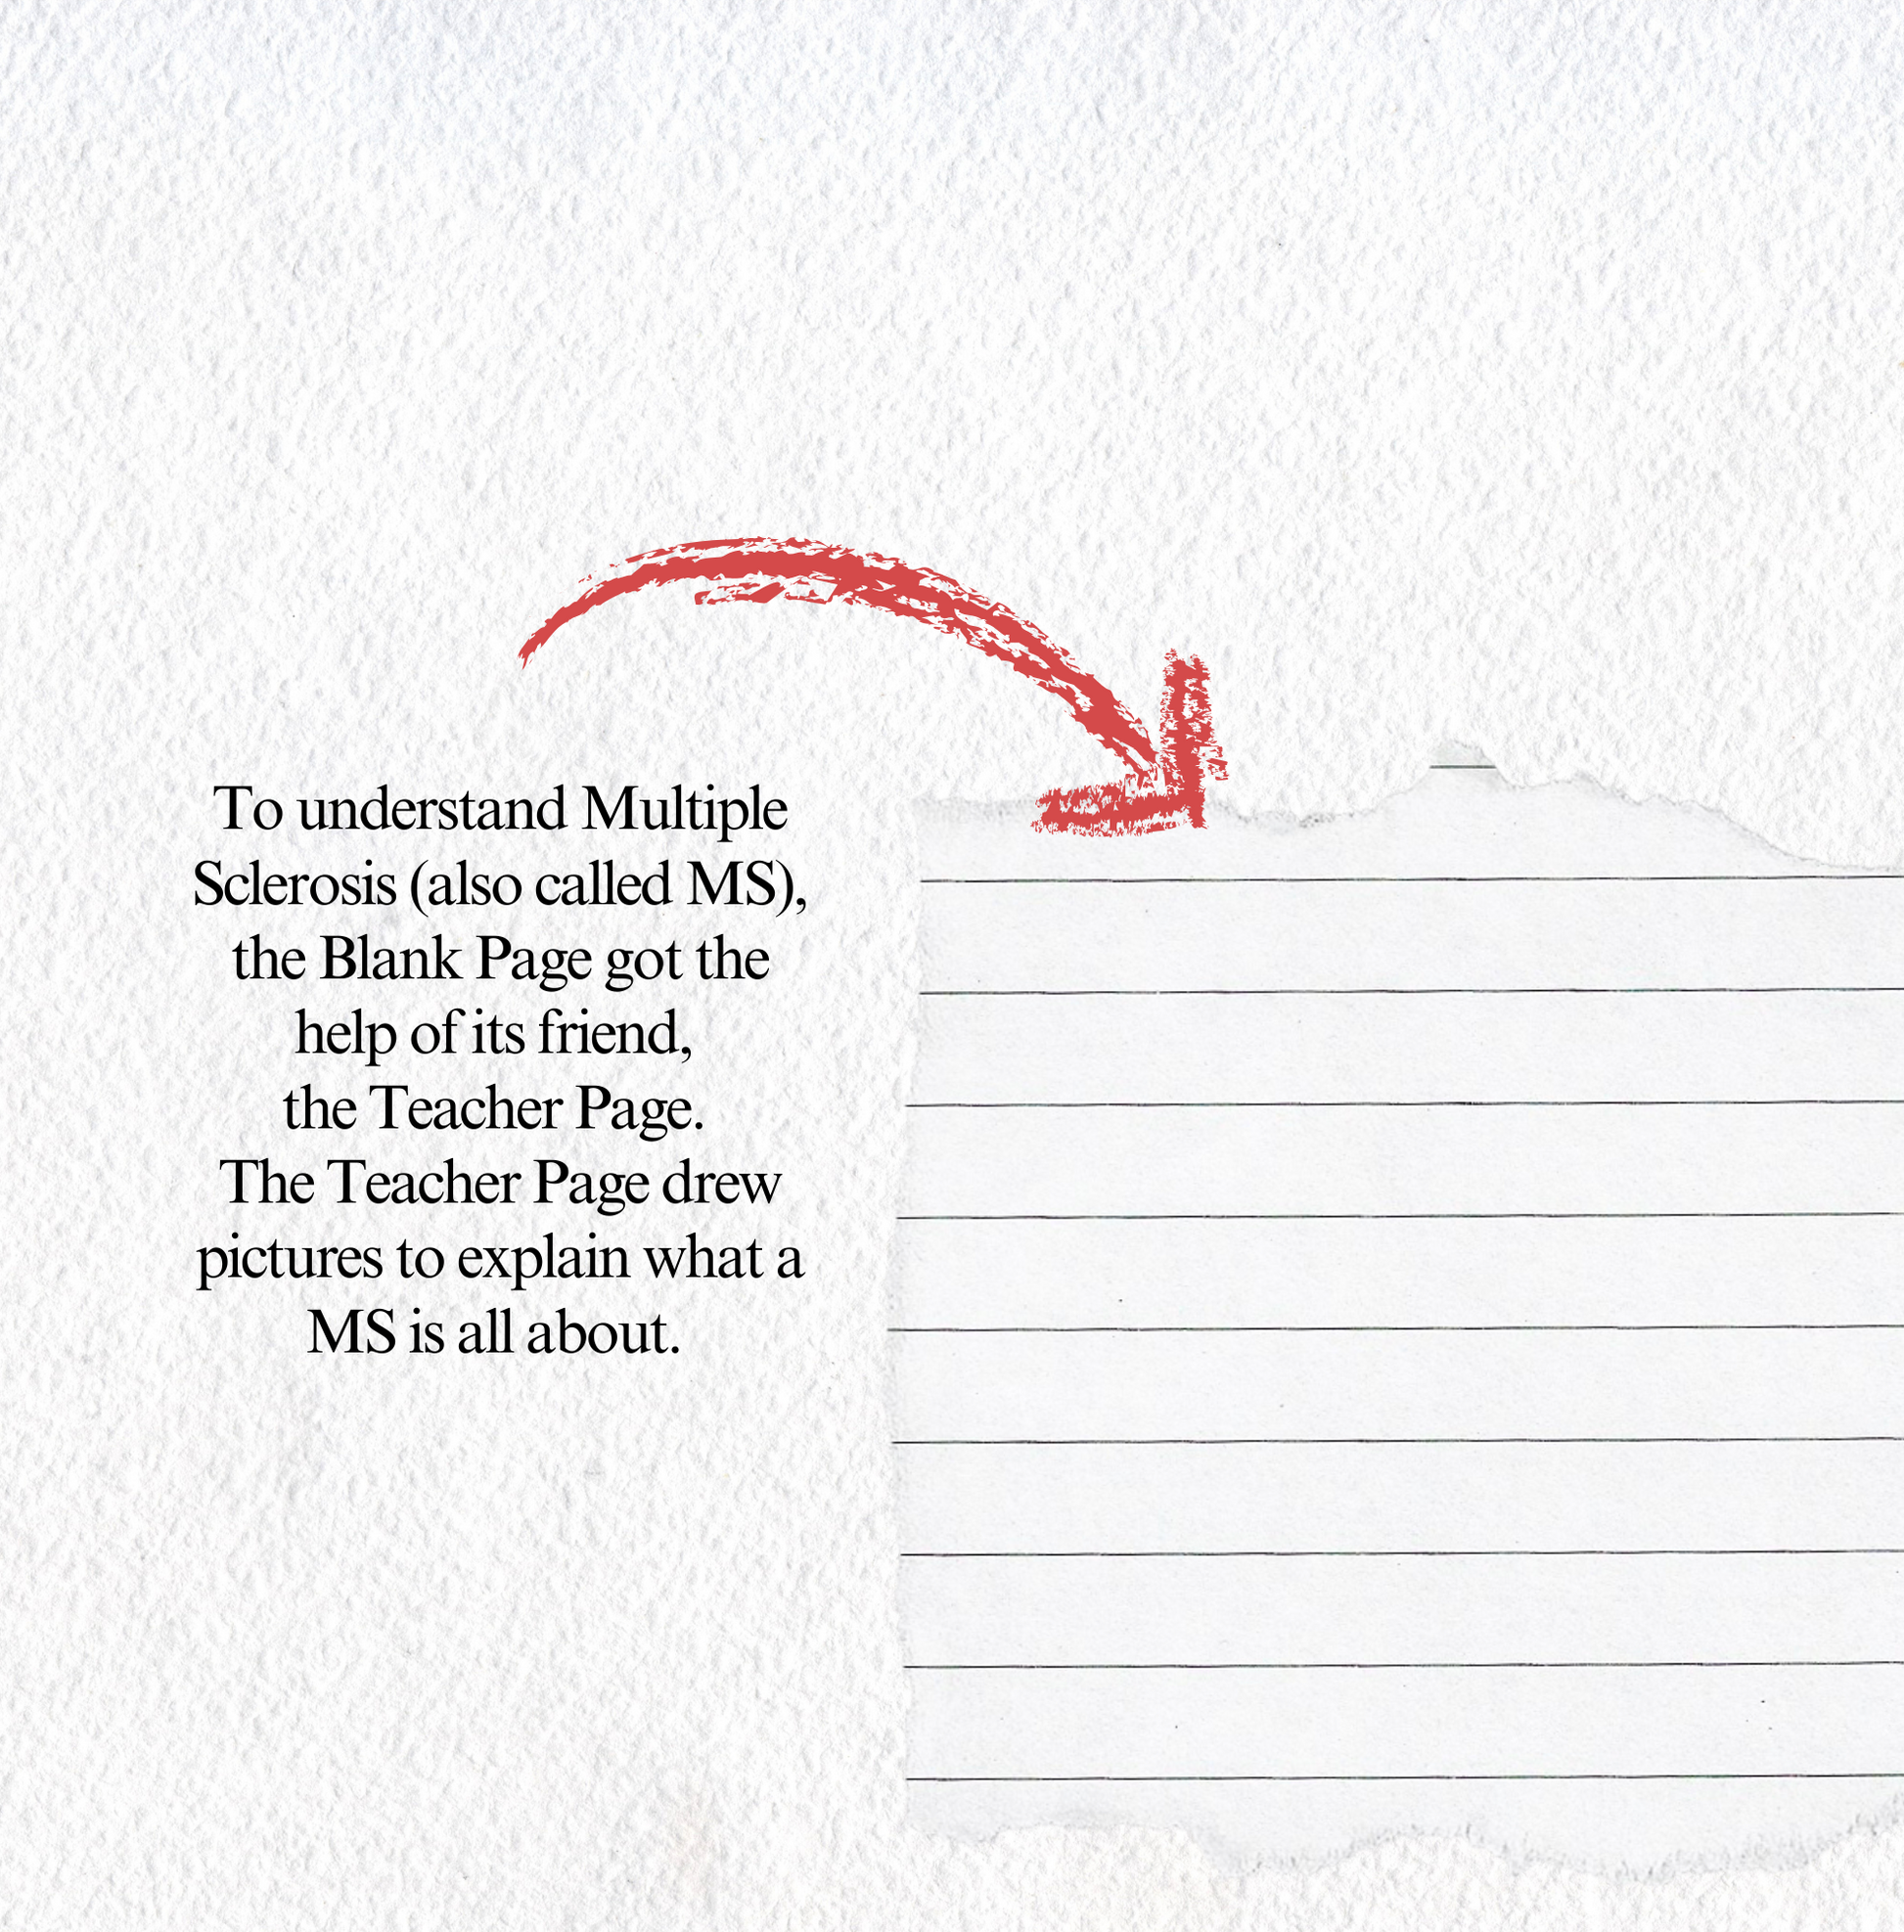 To understand Multiple
Sclerosis (also called MS),
the Blank Page got the
help of its friend,
the Teacher Page.
The Teacher Page drew
pictures to explain what a
MS is all about.